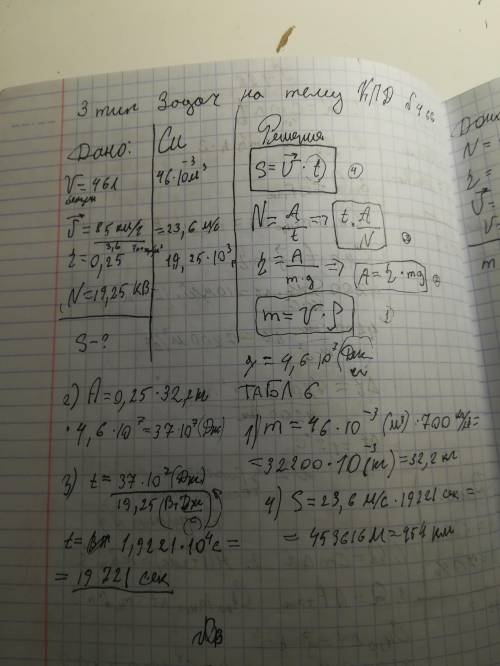 3 тип Задач на тему КПД
Дано:
V=46л
𝑣⃗=85 км/ч
3,6
η=0,25
N=19,25 кВ
S-?
Си
46·10⁻³м³
=23,6 м/с
19,25·10³
Решения
S=𝑣⃗·t ④
N=A/t => t=A/N ③
η=A/m·g => A=η·mg ②
m=V·ρ 1
g=4,6·10⁷(Дж/кг)
ТАБЛ 6
1) m=46·10⁻³(м³)·700 кг/м³=
=32200·10⁻³(кг)=32,2 кг
2) A=0,25·32,2кг
·4,6·10⁷=37·10⁷(Дж)
3) t=37·10⁷(Дж)
19,25(Вт Дж/с)
t= 1,9221·10⁴с=
=19221 сек
4) S=23,6 м/с·19221 сек=
=453616м=454 км